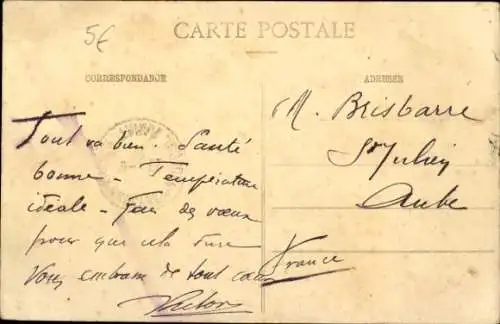 5€
CARTE POSTALE
CORRESPONDANCE
ADRESSE
Tout va bien. Santé
bonne - Température
idéale - Fais des vœux
pour que cela dure
Vous embrasse de tout cœur
Victor
M. Brisbarre
St Julien
Aube
France